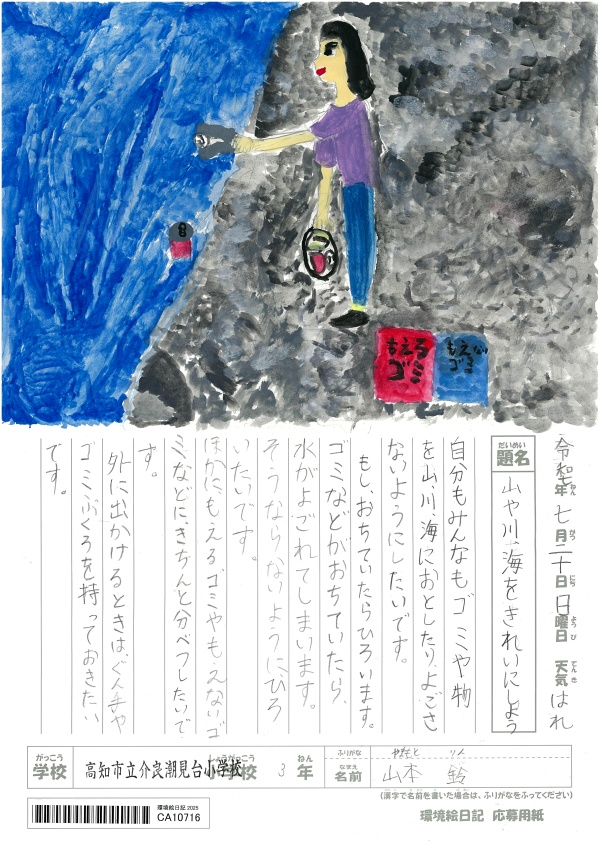 もえる
ゴミ
もえない
ゴミ
令和七年七月二十日日曜日 天気 はれ
ねん がつ にち ようび てんき
だいめい
題名
山や川、海をきれいにしよう
自分もみんなもゴミや物
を山、川、海におとしたり、よごさ
ないようにしたいです。
もし、おちていたらひろいます。
ゴミなどがおちていたら、
水がよごれてしまいます。
そうならないように、ひろ
いたいです。
ほかにもえる、ゴミやもえないゴ
ミなどに、きちんと分べつしたいで
す。
外に出かけるときは、ぐん手や
ゴミぶくろを持っておきたい
です。
がっこう
学校
高知市立介良潮見台小学校
しょうがっこう
3
ねん
年
ふりがな
やまもと りん
なまえ
名前
山本 鈴
(漢字で名前を書いた場合は、ふりがなをふってください)
環境絵日記 2025
CA10716
環境絵日記 応募用紙